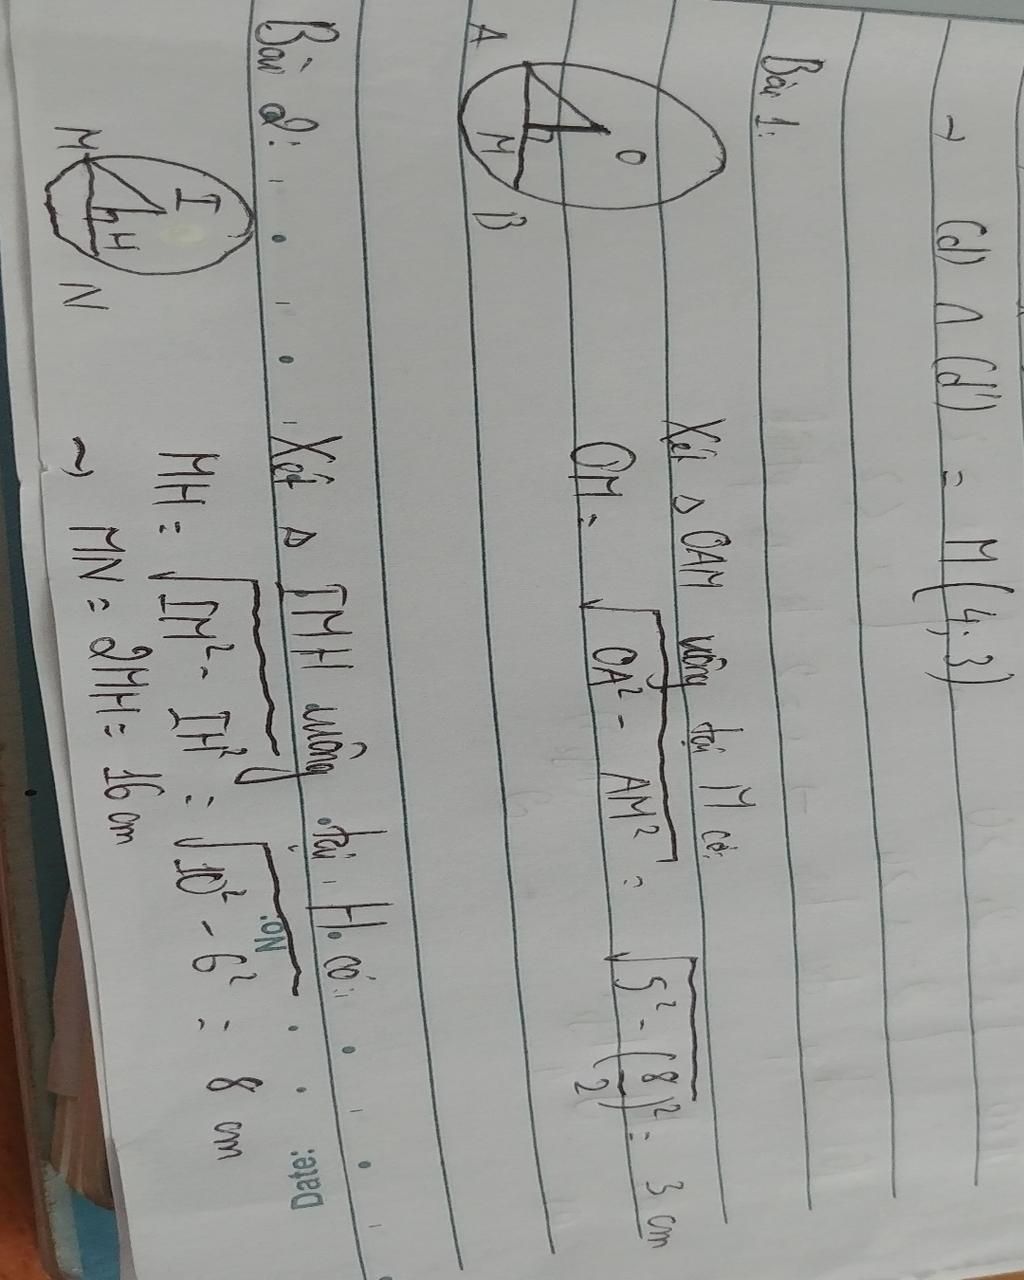 → (d) ∩ (d') = M(4,3)
Bài 1:
O
A M B
Xét Δ OAM vuông tại M có:
OM = √(OA² - AM²) = √(5² - (8/2)²) = 3 cm
No:
Date:
Bài 2:
I
M H N
Xét Δ IMH vuông tại H có:
MH = √(IM² - IH²) = √(10² - 6²) = 8 cm
→ MN = 2MH = 16 cm